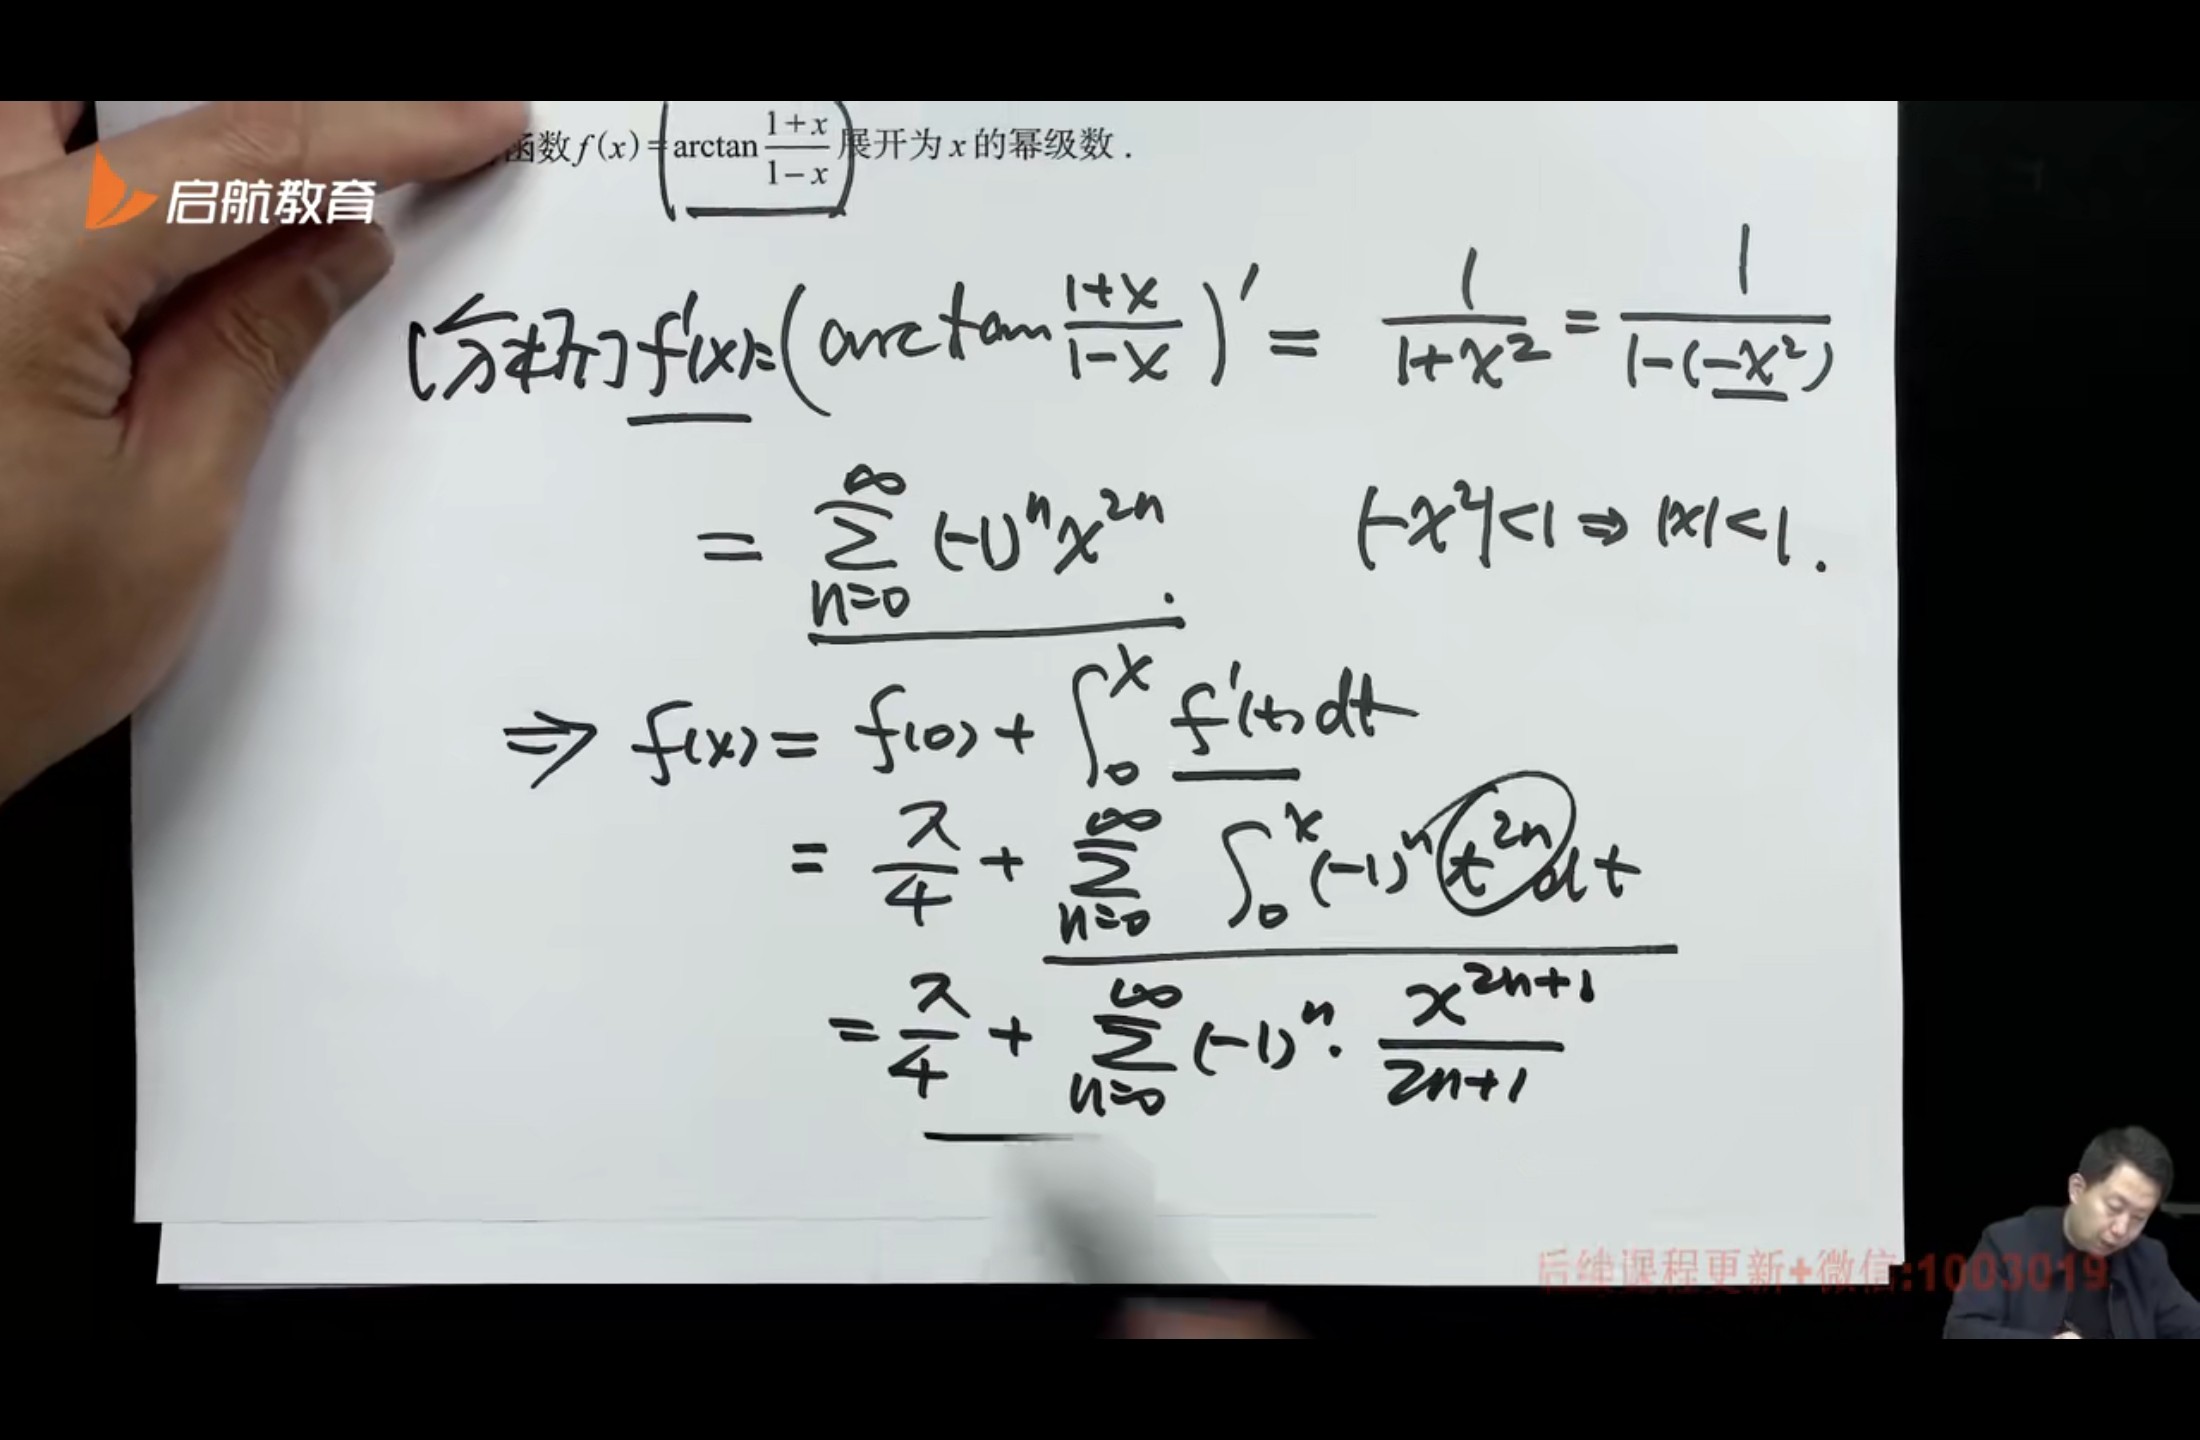 函数f(x)=arctan\frac{1+x}{1-x}展开为x的幂级数.
启航教育
[分析] f'(x)=(arctan\frac{1+x}{1-x})'=\frac{1}{1+x^2}=\frac{1}{1-(-x^2)}
=\sum_{n=0}^{\infty}(-1)^n x^{2n}. |-x^2|<1⇒|x|<1.
⇒f(x)=f(0)+\int_0^x f'(t)dt
=\frac{π}{4}+\sum_{n=0}^{\infty}\int_0^x(-1)^n t^{2n}dt
=\frac{π}{4}+\sum_{n=0}^{\infty}(-1)^n·\frac{x^{2n+1}}{2n+1}
后续课程更新+微信:1003019